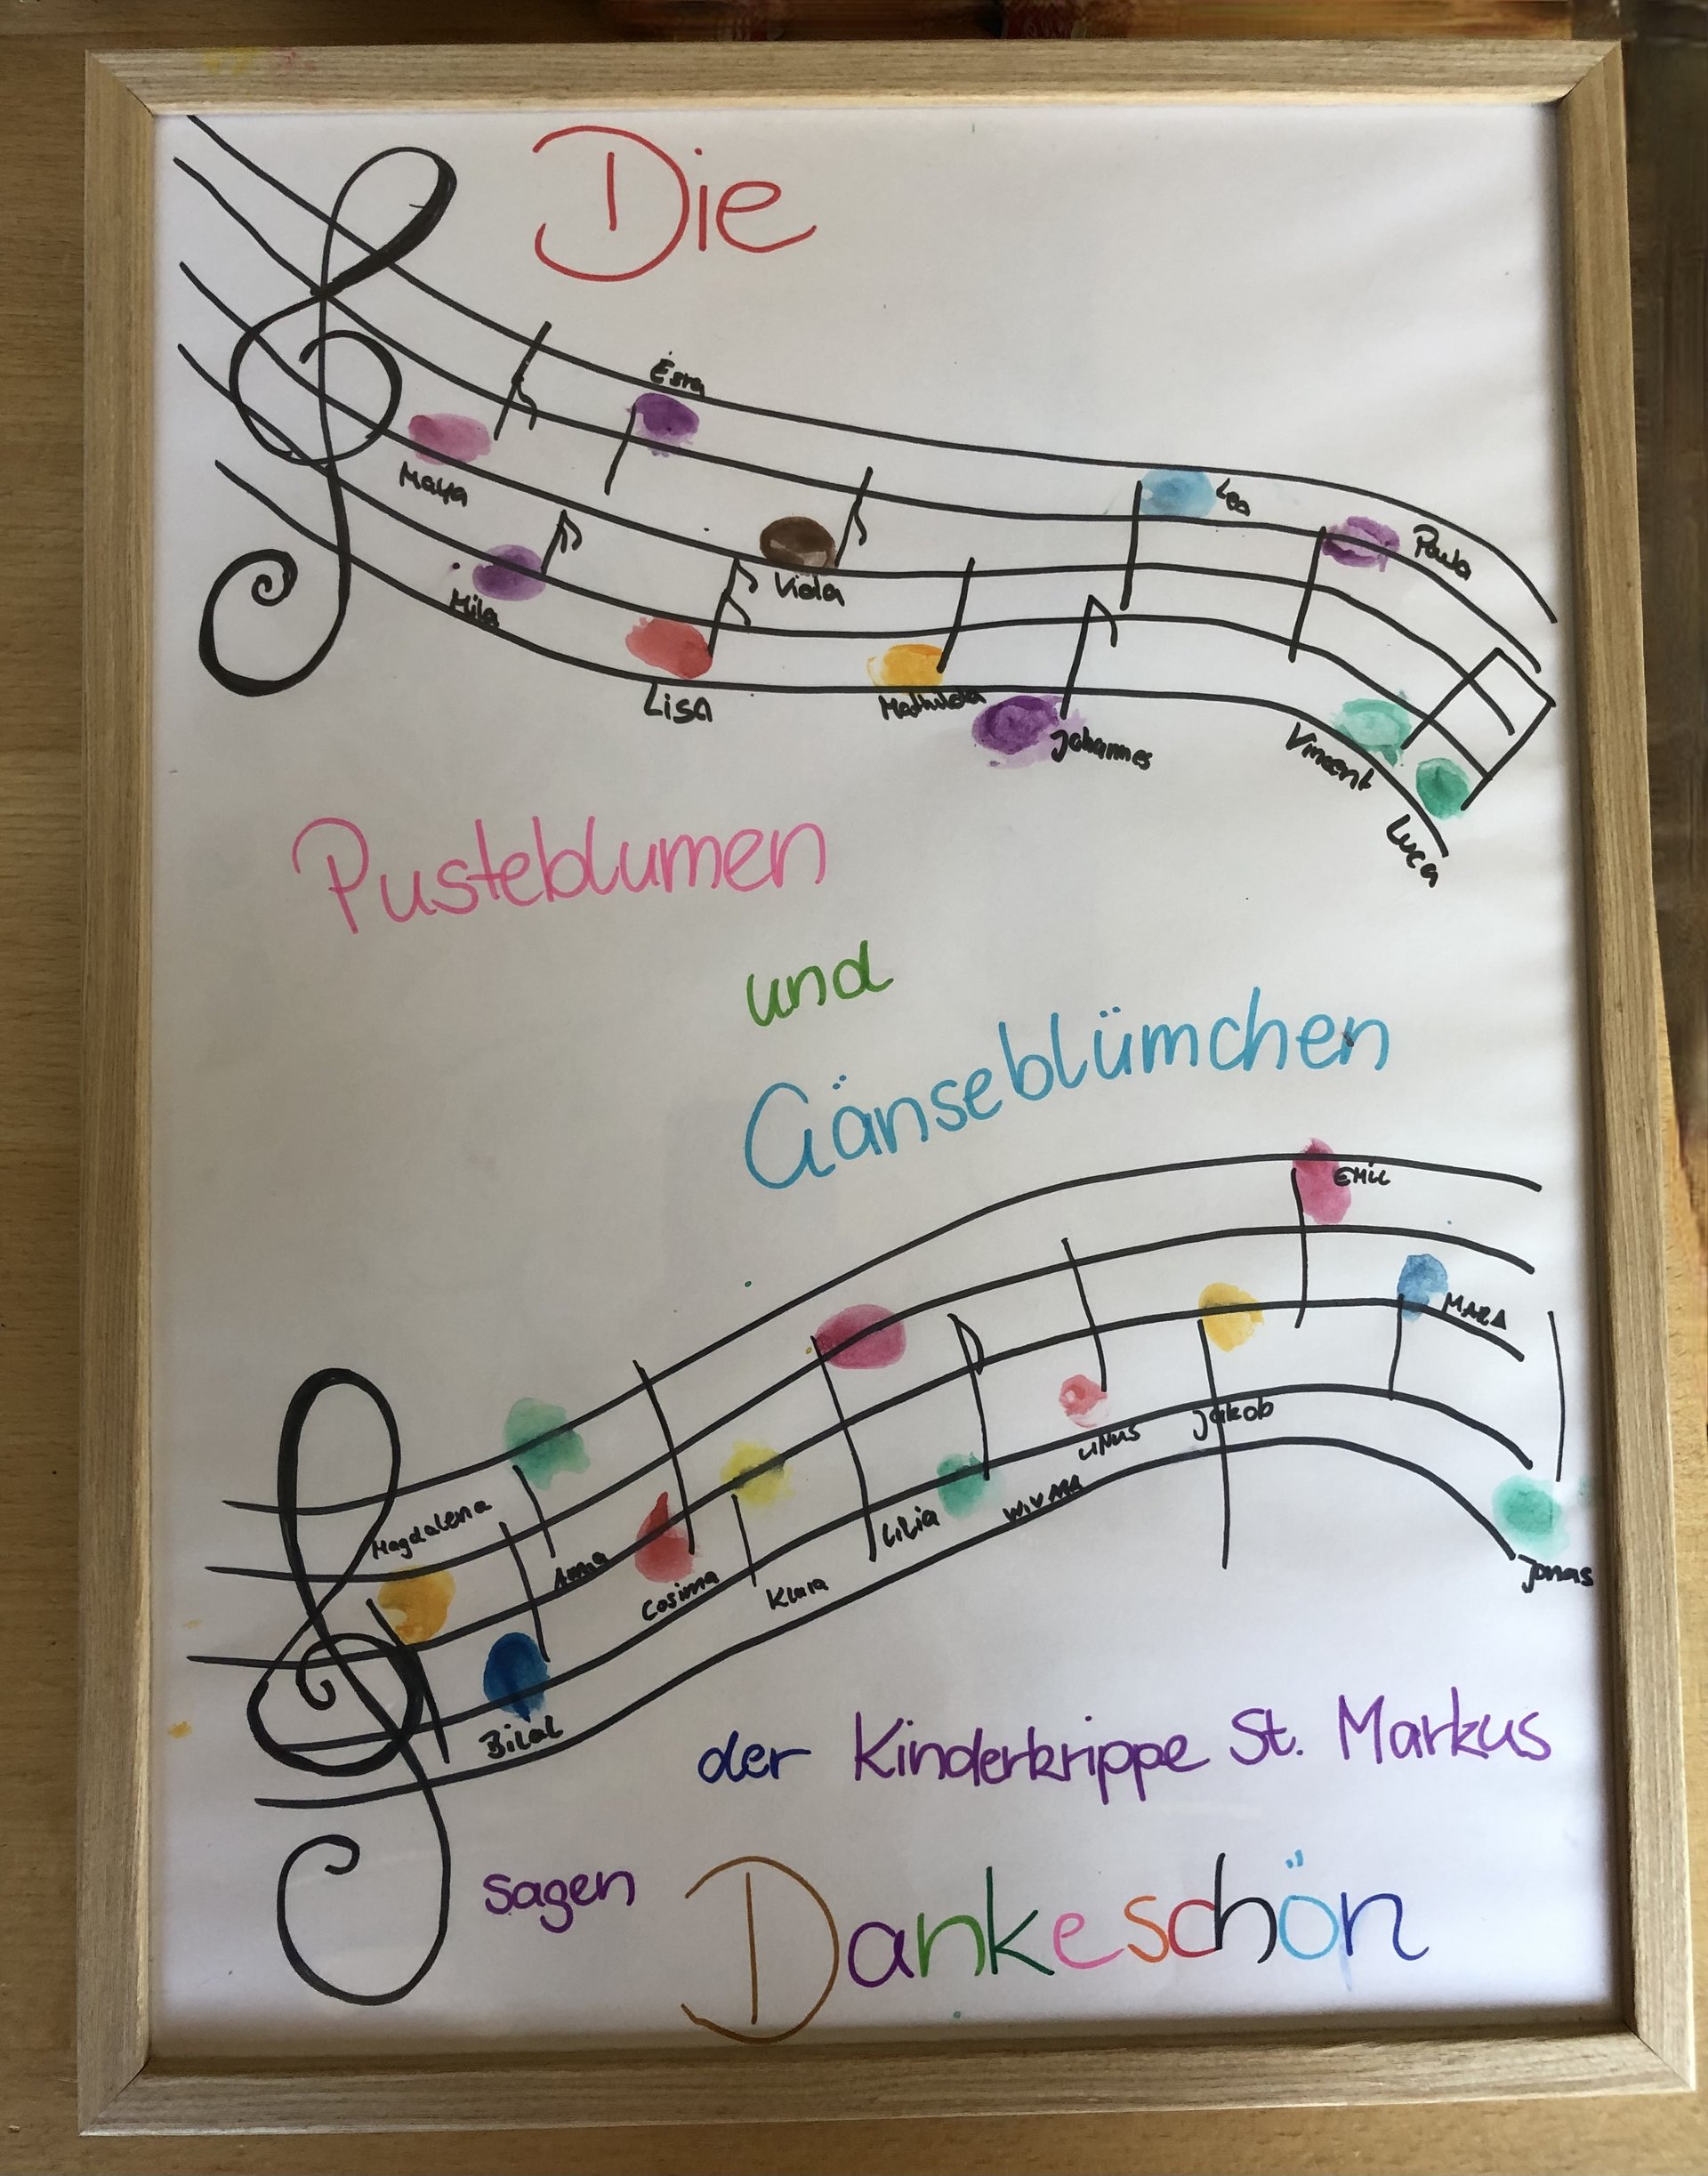 Die
Esra
Maya
Lea
Paula
Viola
Mila
Lisa
Mathilda
Johannes
Vincent
Luca
Pusteblumen
und
Gänseblümchen
EMiL
MARA
Jakob
LiNUS
Magdalena
LiLia
Anna
Cosima
Klara
Jonas
Bilal
der Kinderkrippe St. Markus
sagen Dankeschön